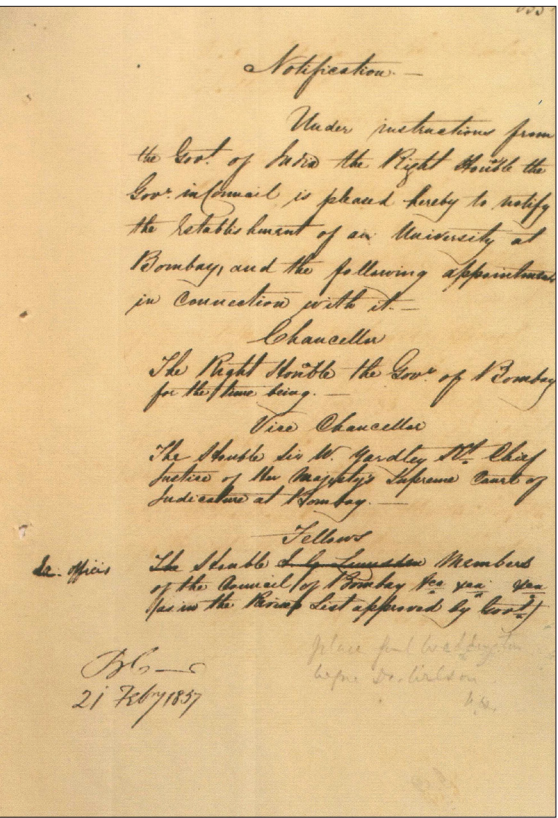 Notification —
Under instructions from
the Govt. of India the Right Honble the
Govr. in Council is pleased hereby to notify
the Establishment of an University at
Bombay, and the following appointments
in connection with it. —
Chancellor
The Right Honble the Govr. of Bombay
for the time being. —
Vice Chancellor
The Honble Sir W. Yardley Kt. Chief
Justice of Her Majesty's Supreme Court of
Judicature at Bombay. —
Fellows
Ex. officio The Honble Members
of the Council of Bombay
(as in the List approved by Govt.)
21 Feby 1857
place
before Dr. Wilson